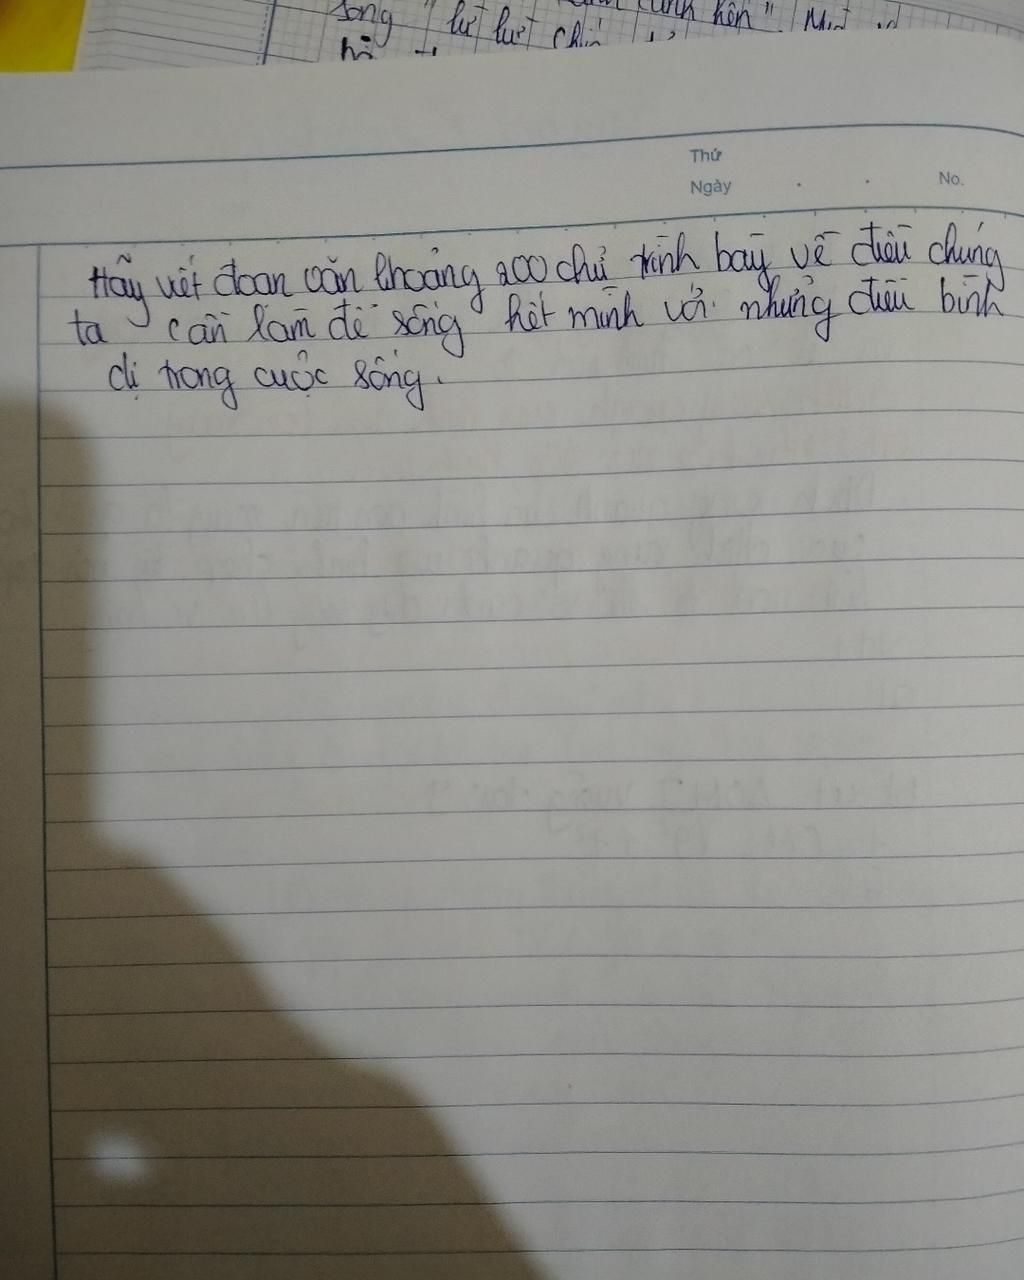 song "lần lượt
Thứ
Ngày . . No.
Hãy viết đoạn văn khoảng 200 chữ trình bày về điều chúng
ta cần làm để sống hết mình với những điều bình
dị trong cuộc sống.